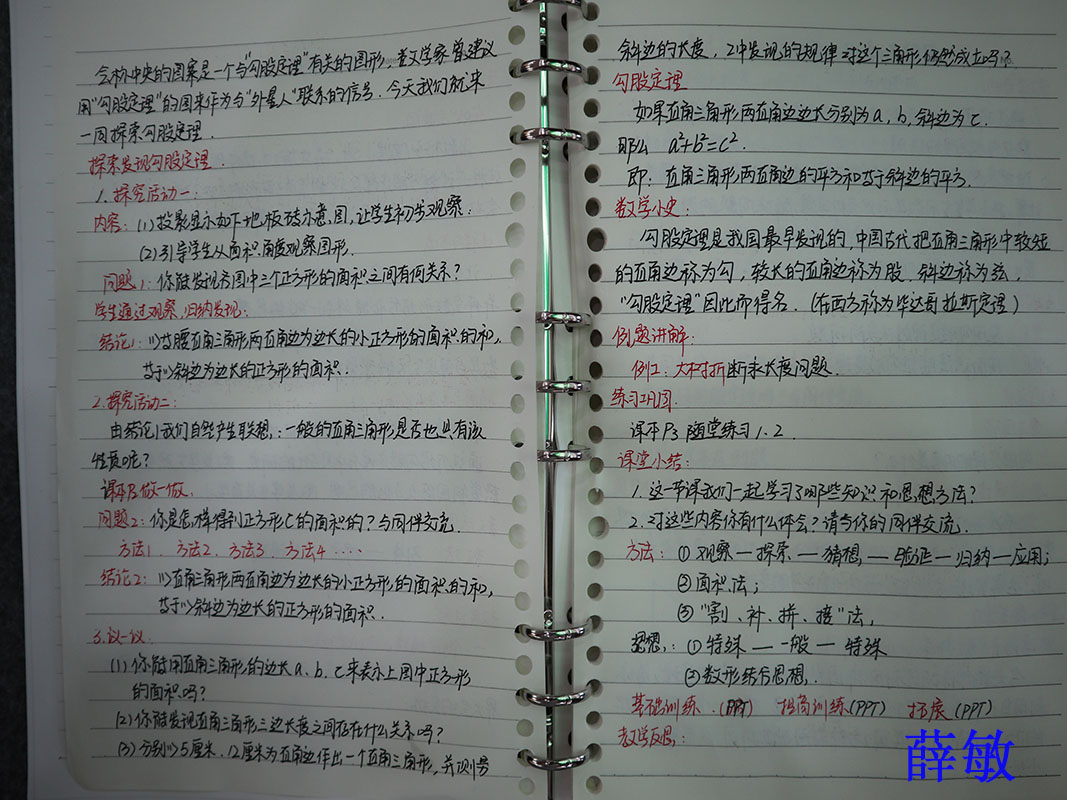 会标中央的图案是一个与“勾股定理”有关的图形,数学家曾建议
用“勾股定理”的图来作为与“外星人”联系的信号.今天我们就来
一同探索勾股定理.
探索发现勾股定理.
1.探究活动一:
内容:(1)投影显示如下地板砖示意图,让学生初步观察:
(2)引导学生从面积角度观察图形.
问题1:你能发现各图中三个正方形的面积之间有何关系?
学生通过观察,归纳发现:
结论1:以等腰直角三角形两直角边为边长的小正方形的面积的和,
等于以斜边为边长的正方形的面积.
2.探究活动二:
由结论1我们自然产生联想:一般的直角三角形是否也具有该
性质呢?
课本P2做一做.
问题2:你是怎样得到正方形C的面积的?与同伴交流.
方法1、方法2、方法3、方法4……
结论2:以直角三角形两直角边为边长的小正方形的面积的和,
等于以斜边为边长的正方形的面积.
3.议一议
(1)你能用直角三角形的边长a、b、c来表示上图中正方形
的面积吗?
(2)你能发现直角三角形三边长度之间存在什么关系吗?
(3)分别以5厘米、12厘米为直角边作出一个直角三角形,并测量
斜边的长度,2中发现的规律对这个三角形仍然成立吗?
勾股定理
如果直角三角形两直角边边长分别为a,b,斜边为c.
那么 a²+b²=c².
即:直角三角形两直角边的平方和等于斜边的平方.
数学小史:
勾股定理是我国最早发现的,中国古代把直角三角形中较短
的直角边称为勾,较长的直角边称为股.斜边称为弦,
“勾股定理”因此而得名.(在西方称为毕达哥拉斯定理)
例题讲解:
例1:大树折断求长度问题.
练习巩固.
课本P3随堂练习1.2.
课堂小结:
1.这一节课我们一起学习了哪些知识和思想方法?
2.对这些内容你有什么体会?请与你的同伴交流.
方法:①观察—探索—猜想—验证—归纳—应用;
②面积法;
③“割、补、拼、接”法,
思想:①特殊—一般—特殊
②数形结合思想.
基础训练.(PPT) 提高训练(PPT) 拓展(PPT)
教学反思:
薛敏